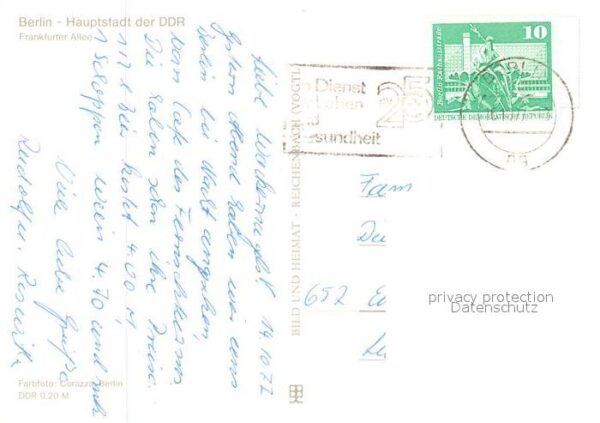 Berlin - Hauptstadt der DDR
Frankfurter Allee
Liebe 14.10.77
Gestern Abend haben wir uns
Berlin bei Nacht angesehen
vom Café des Fernsehturms.
Die haben schon ihre Preise.
1 Bier kostet 4.00 M,
1 Schoppen Wein 4.70 und mehr
Viele liebe Grüße
Rudolf u.
Farbfoto: Corazza, Berlin
DDR 0,20 M
BILD UND HEIMAT · REICHENBACH (VOGTL
Dienst
Leben
sundheit
25
10
Berlin, Rathausstraße
DEUTSCHE DEMOKRATISCHE REPUBLIK
Fam
652
privacy protection
Datenschutz